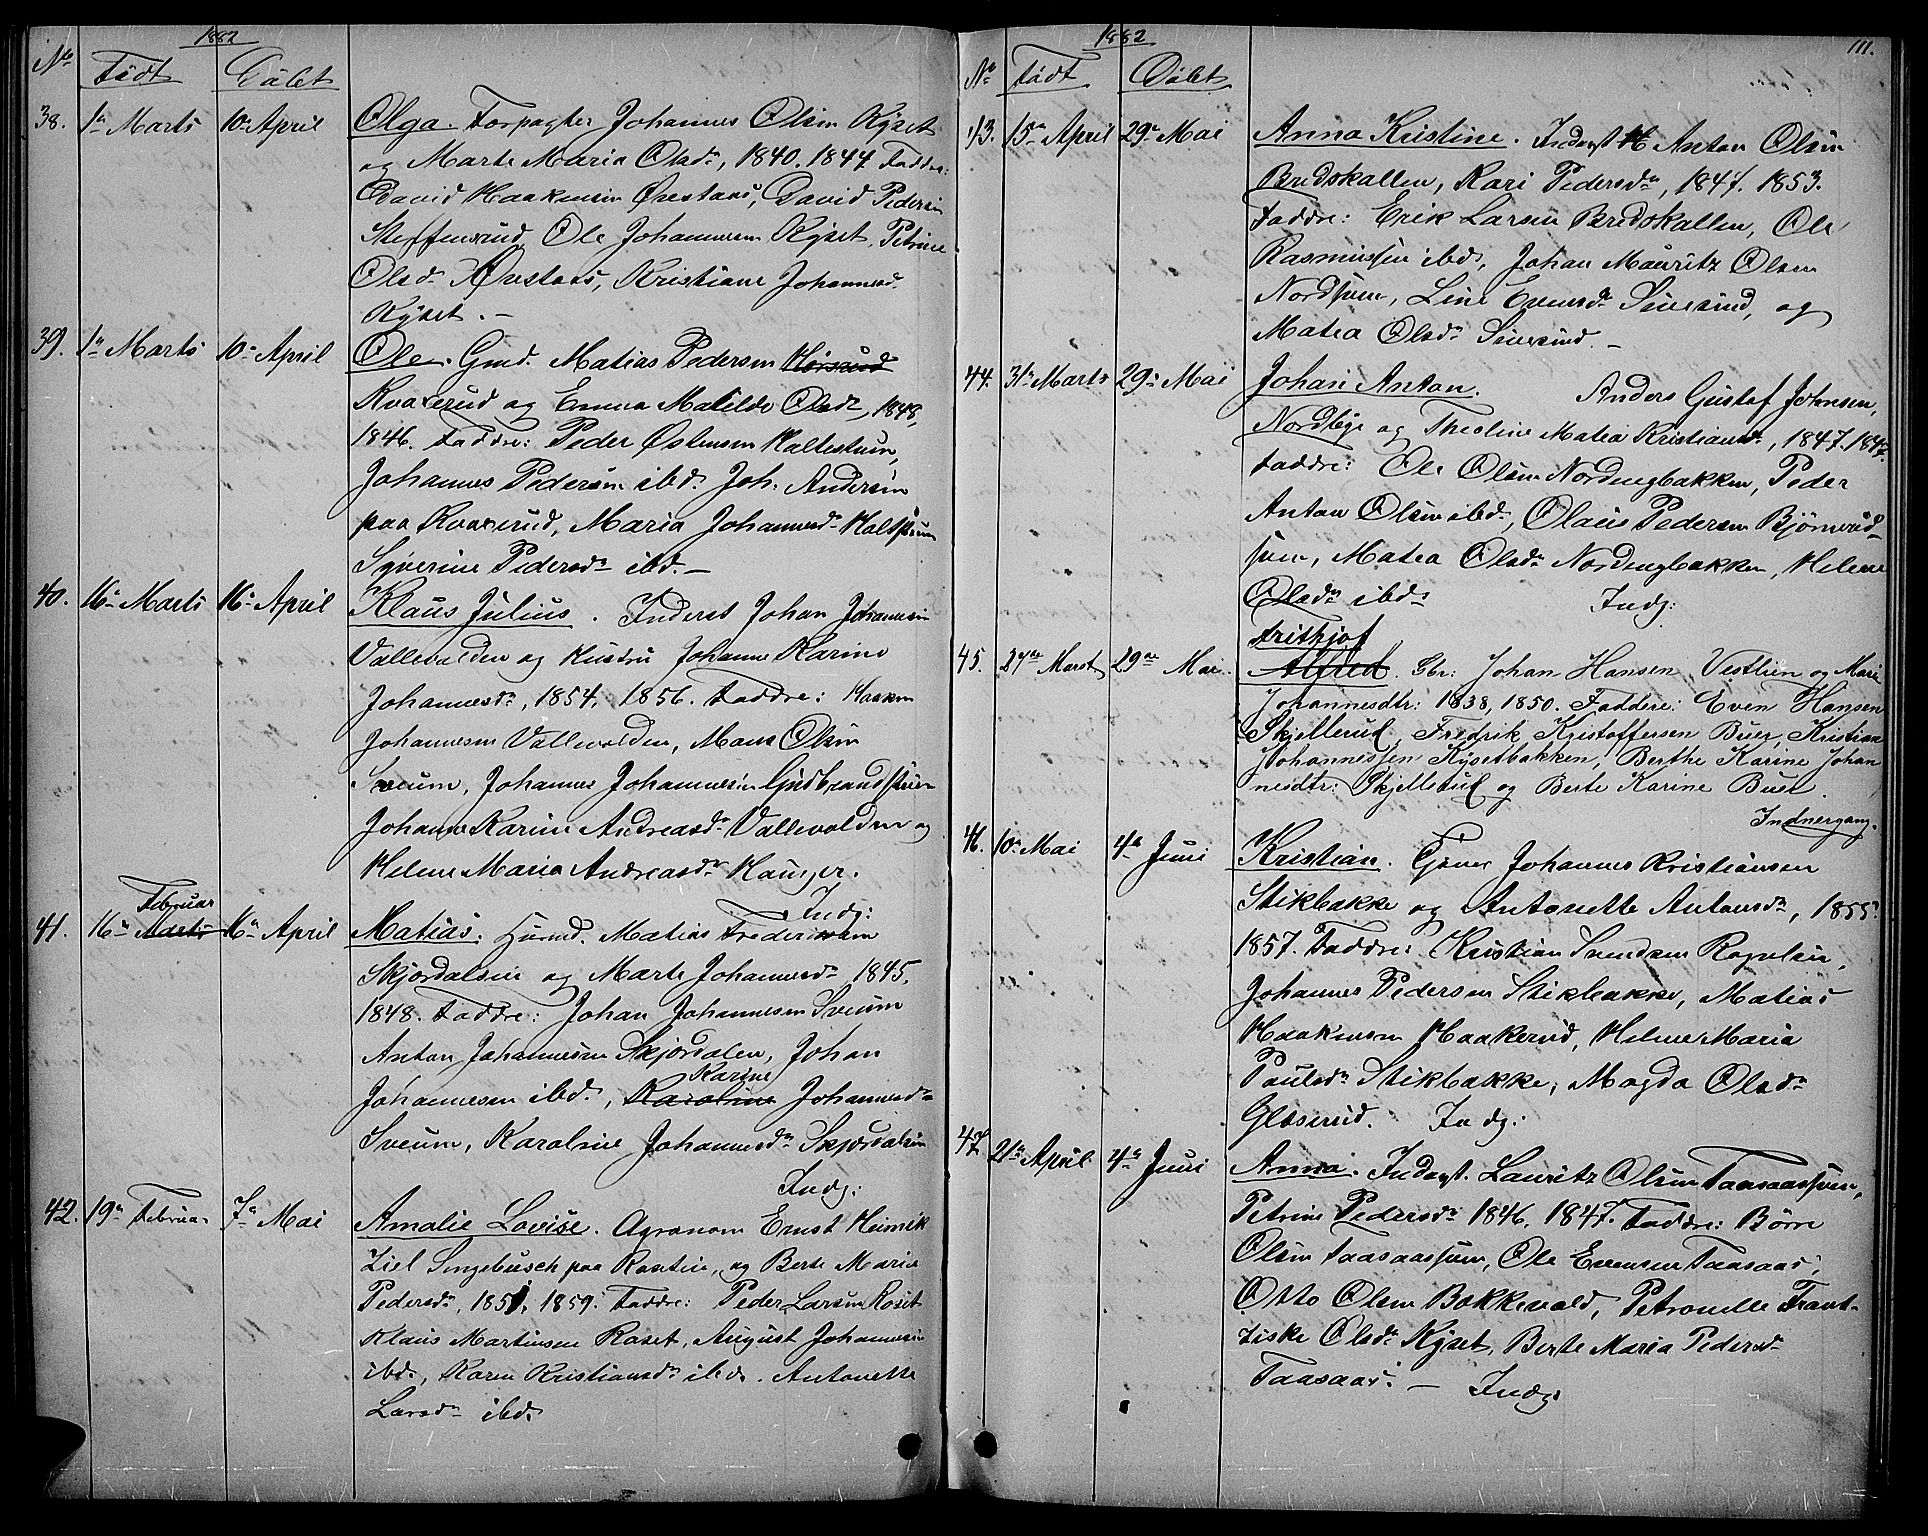 1882
No Födt Döbt
38. 1n Marts 10n April Olga. Forpagter Johannes Olsen Kyset
og Marte Maria Olsdn, 1840. 1844 Faddre:
David Haakensen Örestaas, David Pedersen
Steffensrud, Ole Johannesen Kyset, Petrine
Olsdn Örestaas, Kristiane Johannesd.
Kyset. —
39. 1n Marts 10n April Ole. Gmd. Matias Pedersen
Kvaxerud og Emma Matilde Olsdn, 1848,
1846. Faddre: Peder Östensen Haltestuen,
Johannes Pedersen ibd. Joh. Andersen
paa Kvaxerud, Maria Johannesdn Haltstuen
Syverine Pedersdn ibd. —
40. 16n Marts 16n April Klaus Julius. Inderst Johan Johannesen
Vallevolden og Hustru Johanne Karine
Johannesdn, 1854, 1856. Faddre: Haaken
Johannesen Vallevolden, Mons Olsen
Sveum, Johannes Johannesen Gudbrandstuen
Johanne Karine Andreasdn Vallevolden og
Helene Maria Andreasdn Hauger.
Indg:
Februar
41. 16n Marts 16n April Matias. Husmd. Matias Frederiksen
Skjördalsen og Marte Johannesdn 1845.
1848. Faddre: Johan Johannesen Sveum
Anton Johannesen Skjördalen, Johan
Karine
Johannesen ibd., Karoline Johannesdn
Sveum, Karoline Johannesdn Skjördalen
Indg:
42. 19n Februar 7n Mai Amalie Lovise. Agronom Ernst Heinrik
Ziel Singebusch paa Rostin, og Berte Marie
Pedersdn, 1851, 1859. Faddre: Peder Larsen Roset
Klaus Martinsen Roset, August Johannesen
ibd., Karen Kristiansdn ibd. Antonette
Larsdn ibd.
1882 111.
No Födt Döbt
43. 15n April 29n Mai Anna Kristine. Indagt Anton Olsen
Bredskallen, Kari Pedersdn, 1847. 1853.
Faddre: Erik Larsen Bredskallen, Ole
Rasmussen ibd, Johan Mauritz Olsen
Nordsveen, Line Evensdn Siversrud, og
Matea Olsdn Siversrud. —
44. 31n Marts 29n Mai Johan Anton. Anders Gustaf Johnsen,
Nordbye og Theoline Matea Kristiansdn, 1847. 1847.
Faddre: Ole Olsen Nordengbakken, Peder
Anton Olsen ibd, Olaus Pedersen Björnerud-
sven, Matea Olsdn Nordengbakken, Helene
Olsdn ibd. Indg:
Frithjof
45. 27de Marst 29de Mai. Alfred. Gbr: Johan Hansen Vestlien og Mari
Johannesdtr: 1838, 1850. Faddere: Even Hansen
Skjellerud, Fredrik Kristoffersen Buer, Kristian
Johannessen Kysetbakken, Berthe Karine Johan
nesdtr: Skjellerud og Berte Karine Buer.
Indnergang.
46. 10n Mai 4n Juni Kristian. Tjener Johannes Kristiansen
Stikbakke og Antonette Antonsdn, 1855.
1857. Faddre: Kristian Svendsen Rognlien,
Johannes Pedersen Stikbakke, Matias
Haakensen Haakerud, Helene Maria
Paulsdn Stikbakke, Magda Olsdn
Glæserud. Indg:
47. 21n April 4n Juni Anna. Indagt. Lauritz Olsen Taasaassven,
Petrine Pedersdn 1846, 1847. Faddre: Börre
Olsen Taasaassven, Ole Evensen Taasaas,
Otto Olsen Bakkevold, Petronelle Frant-
ziske Olsdn Kyset, Berte Maria Pedersdn
Taasaas. — Indg: